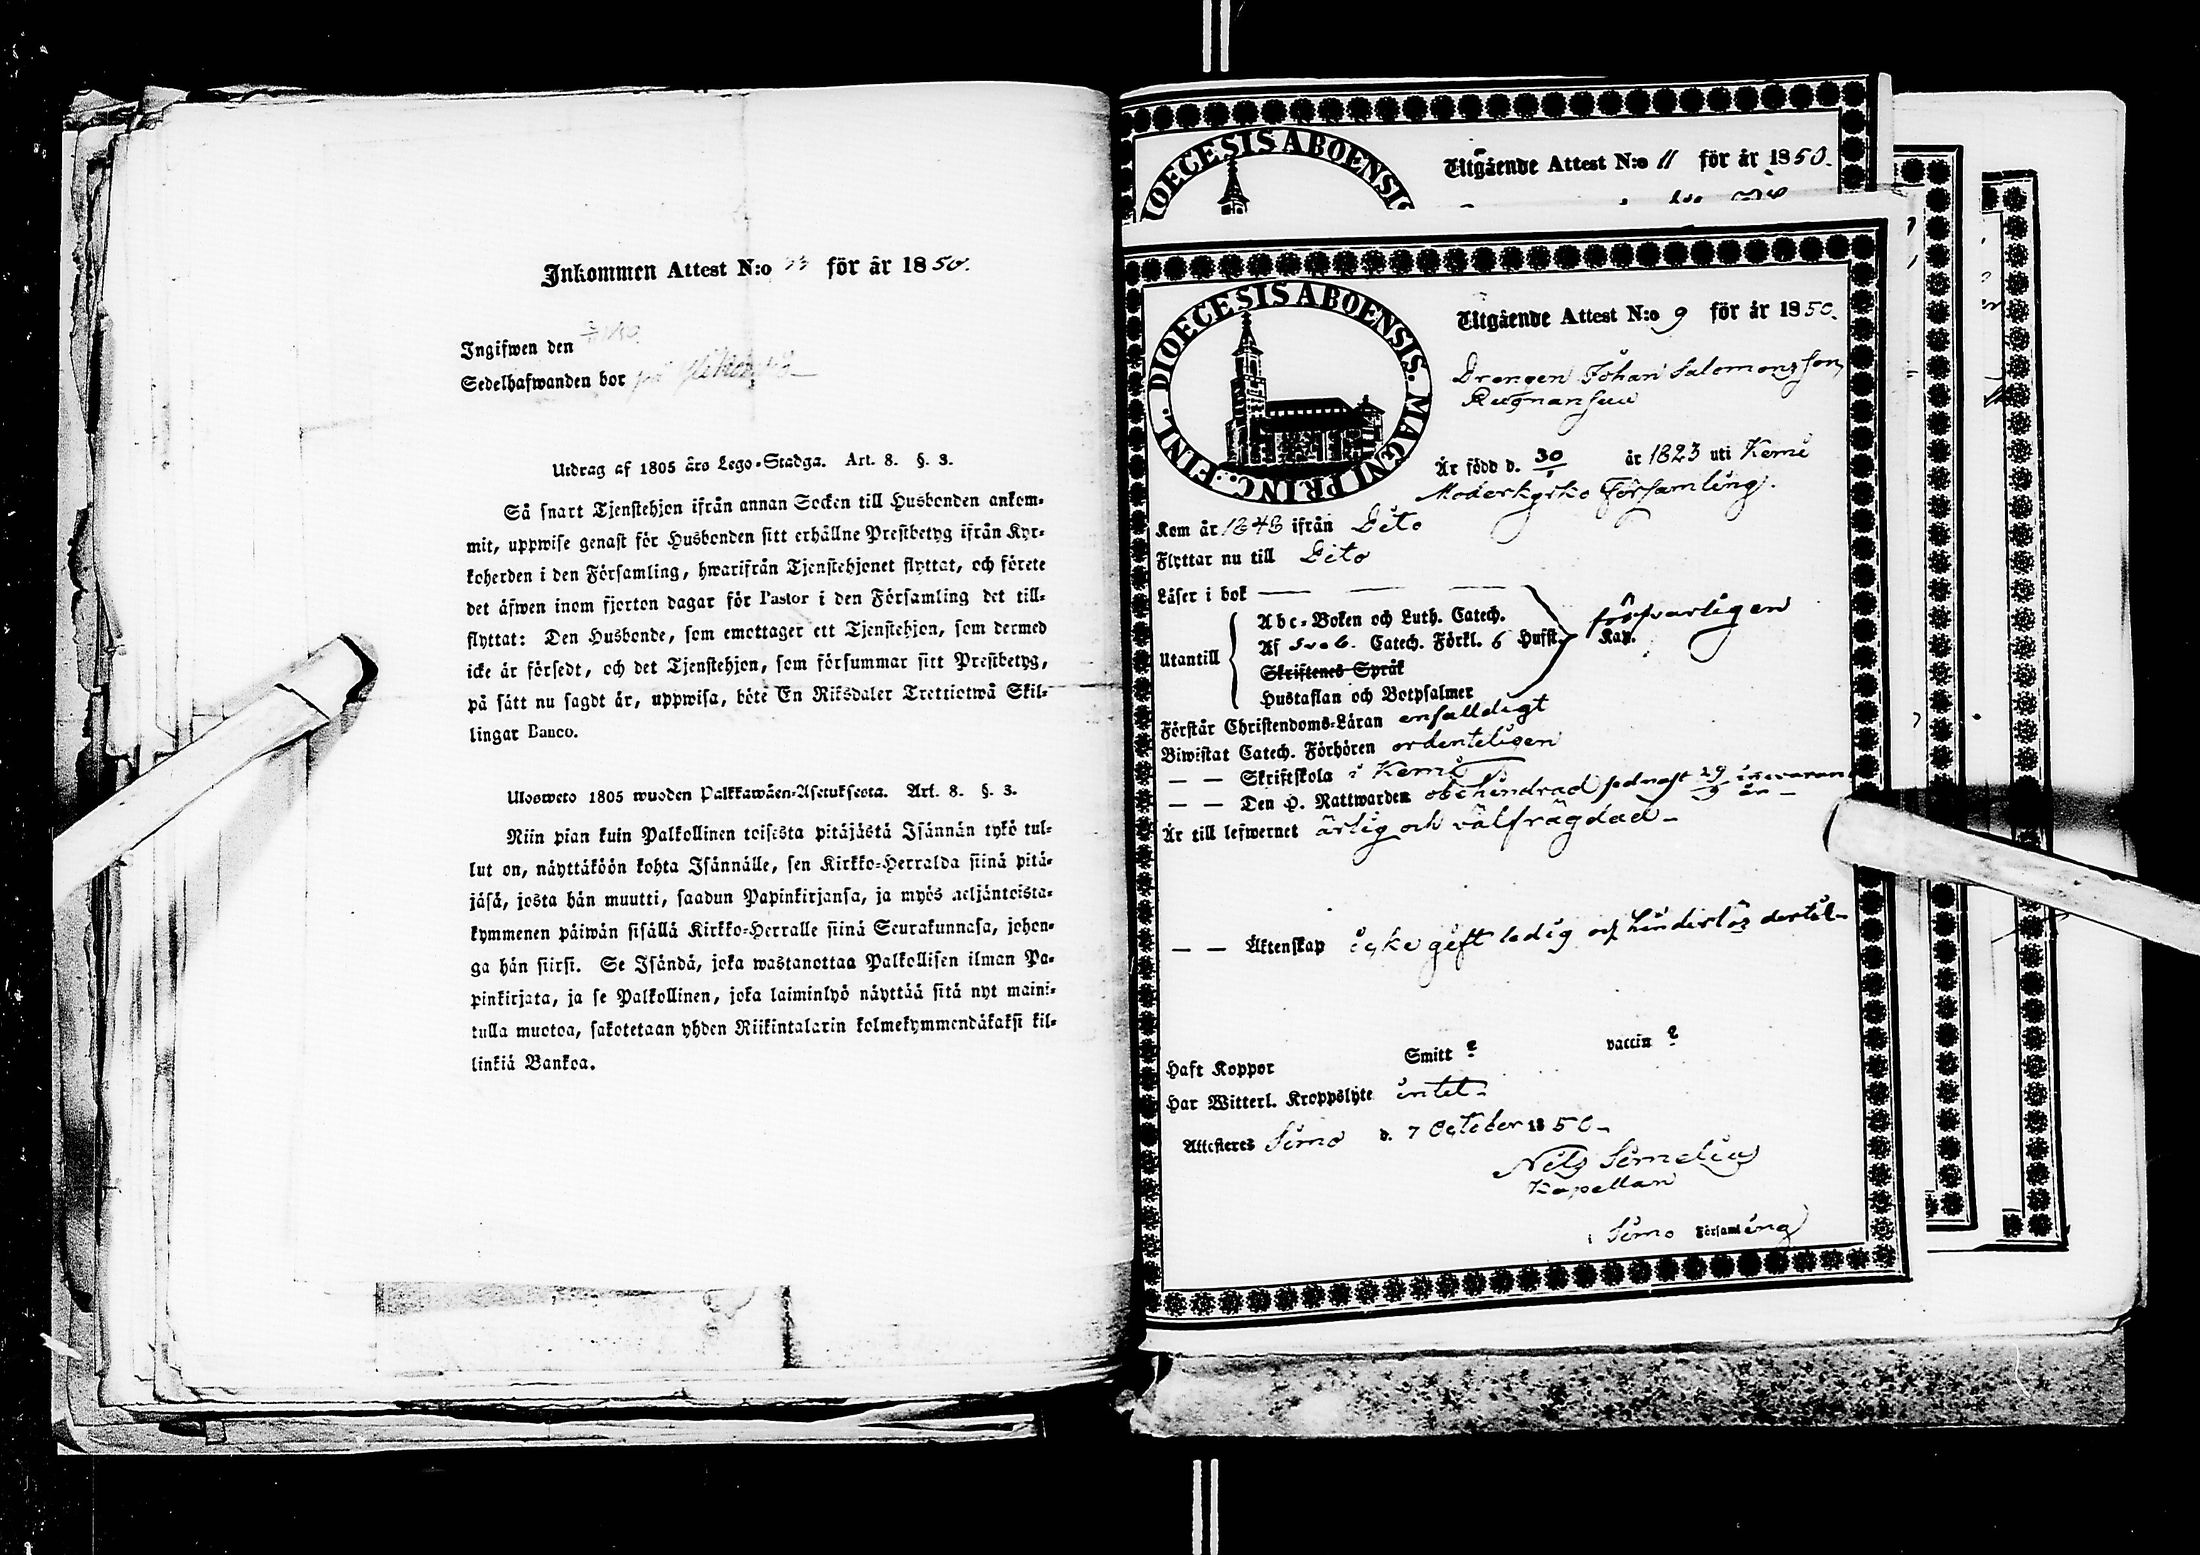 Inkommen Attest N:o 33 för år 1850.
Ingifwen den
Sedelhafwanden bor på
Utdrag af 1805 års Lego-Stadga. Art. 8. §. 3.
Så snart Tjenstehjon ifrån annan Socken till Husbonden ankom-
mit, uppwise genast för Husbonden sitt erhållne Prestbetyg ifrån Kyr-
koherden i den Församling, hwarifrån Tjenstehjonet flyttat, och förete
det äfwen inom fjorton dagar för Pastor i den Församling det till-
flyttat: Den Husbonde, som emottager ett Tjenstehjon, som dermed
icke är försedt, och det Tjenstehjon, som försummar sitt Prestbetyg,
på sätt nu sagdt är, uppwisa, böte En Riksdaler Trettiotwå Skil-
lingar Banco.
Ulosweto 1805 wuoden Palkkawäen-Asetuksesta. Art. 8. §. 3.
Niin pian kuin Palkollinen toisesta pitäjästä Isännän tykö tul-
lut on, näyttäköön kohta Isännälle, sen Kirkko-Herralda siinä pitä-
jäsä, josta hän muutti, saadun Papinkirjansa, ja myös neljäntoista-
kymmenen päiwän sisällä Kirkko-Herralle siinä Seurakunnasa, johon-
ga hän siirsi. Se Isändä, joka wastanottaa Palkollisen ilman Pa-
pinkirjata, ja se Palkollinen, joka laiminlyö näyttää sitä nyt maini-
tulla muotoa, sakotetaan yhden Riikintalarin kolmekymmendäkaksi kil-
linkiä Bankoa.
DIOECESIS ABOENSIS
Utgående Attest N:o 11 för år 1850.
FINL. DIOECESIS ABOENSIS. MAGNI PRINC.
Utgående Attest N:o 9 för år 1850.
Drengen Johan Salomonsson
Är född d. 30/1 år 1823 uti Kemi
Moderkyrko Församling.
Kom år 1848 ifrån Dito
Flyttar nu till Dito
Läser i bok — — —
Abc-Boken och Luth. Catech.
Utantill Af Sveb. Catech. Förkl. 6 Hufst. Kap. försvarligen
Skriftenes Språk
Hustaflan och Botpsalmer
Förstår Christendoms-Läran enfalldigt
Biwistat Catech. Förhören ordenteligen
— — Skriftskola i Kemi
— — Den H. Nattwarden obehindrad sednast 29/9 innevarande år -
Är till lefwernet ärlig och välfrägdad -
— — Äktenskap icke gift ledig och hinderlös dertil -
Haft Koppor Smitt ? vaccin ?
Har Witterl. Kroppslyte intet -
Attesteres Simo d. 7 October 1850 -
Nils Simelius
Kapellan
i Simo Församling